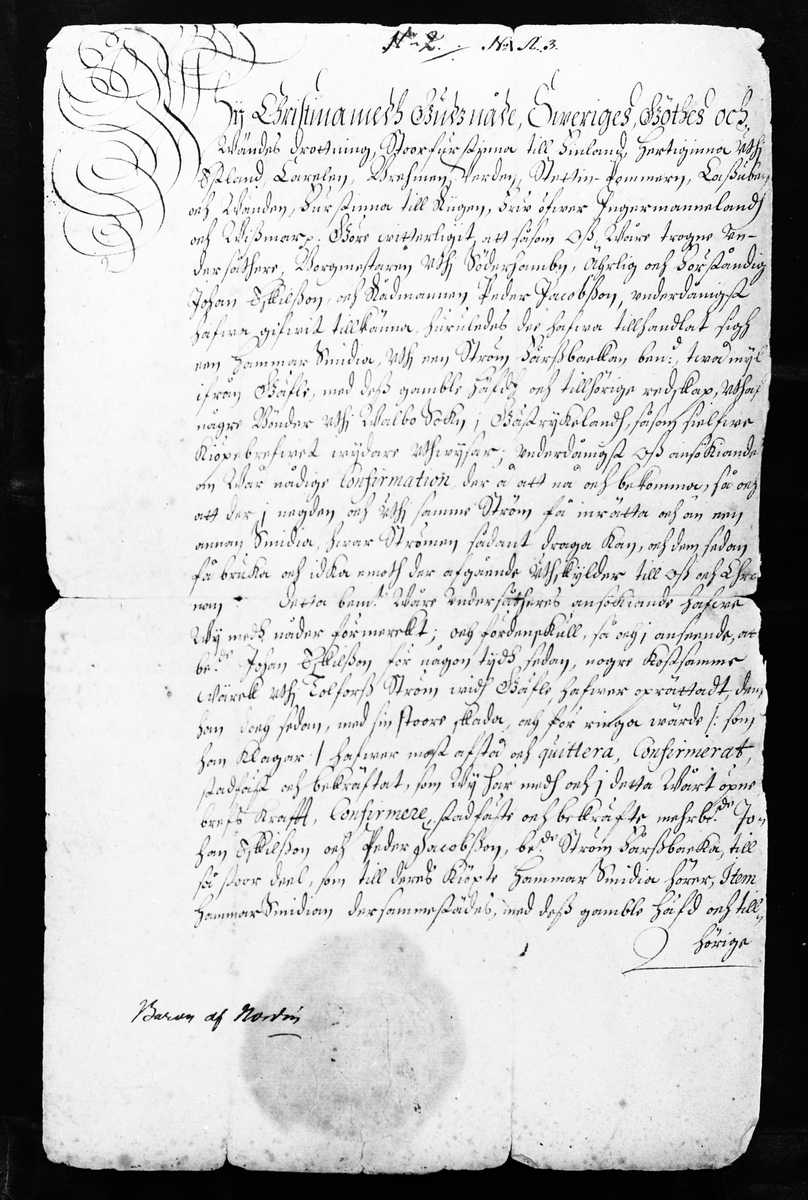 N:o 2. N:o A. 3.
Wij Christina medh Gudz nåde, Sweriges, Göthes och
Wändes drottning, Stoorfurstinna till Finland, Hertiginna vthi
Estland, Carelen, Brehmen, Verden, Stettin-Pommern, Caßuben
och Wenden, Furstinna till Rügen, Frw öfwer Ingermannelandh
och Wißmar p. Göre witterligit, att såsom Oß Wåre trogne Un-
dersåthere, Borgmestaren vthi Söderhambn, Ährlig och Förståndig
Johan Eskilßon, och Rådmannen Peder Jacobßon, vnderdånigst
hafwa gifwit tillkänna, huruledes dee hafwa tillhandlat sigh
een Hammar Smidia, vthi een Ström Forßbaeckan ben:d, twå mijl
ifrån Gäfle, med deß gamble häfdh och tillhörige redskap, vthaf
någre Bönder vthi Walbo Sokn i Gästrykelandh, såsom sielfwe
Kiöpebrefwet wydare vthwysar; vnderdånigst Oß ansökiande
om Wår nådige Confirmation der å att nå och bekomma, så och
att der i negden och vthi samme Ström få inrätta och än een
annan Smidia, hwar Strömen sådant draga kan, och dem sedan
få bruka och idka emoth der afgående Uthskylder till Oß och Chro-
nan. Detta bem:te Wåre Undersåtheres ansökiande hafwe
Wij medh nåder förmerckt; och fördenskull, så och i anseende, at
be:de Johan Eskilßon för någon tydh sedan, nogre Kostsamme
Wärck vthi Tolforß Ström widh Gäfle hafwer oprättadt, dem
han doch sedan, med sin stoore skada, och för ringa wärde /: som
han klagar / hafwer mast afstå och quittera, Confirmerat,
stadfäst och bekräftat, som Wij här medh och i detta Wårt öpne
brefs Krafft, Confirmere, stadfäste och bekräfte mehrbe:de Jo-
han Eskilßon och Peder Jacobßon, be:de Ström Forßbaecka, till
så stoor deel, som till deres Kiöpte Hammar Smidia hörer, Item
Hammar Smidian dersammestädes, med deß gamble häfd och till-
hörige
Baron af Nordin